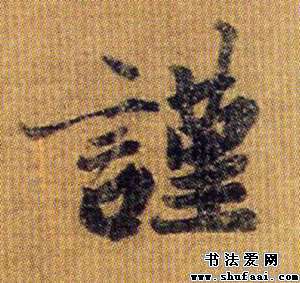 謹
书法爱网
www.shufaai.com